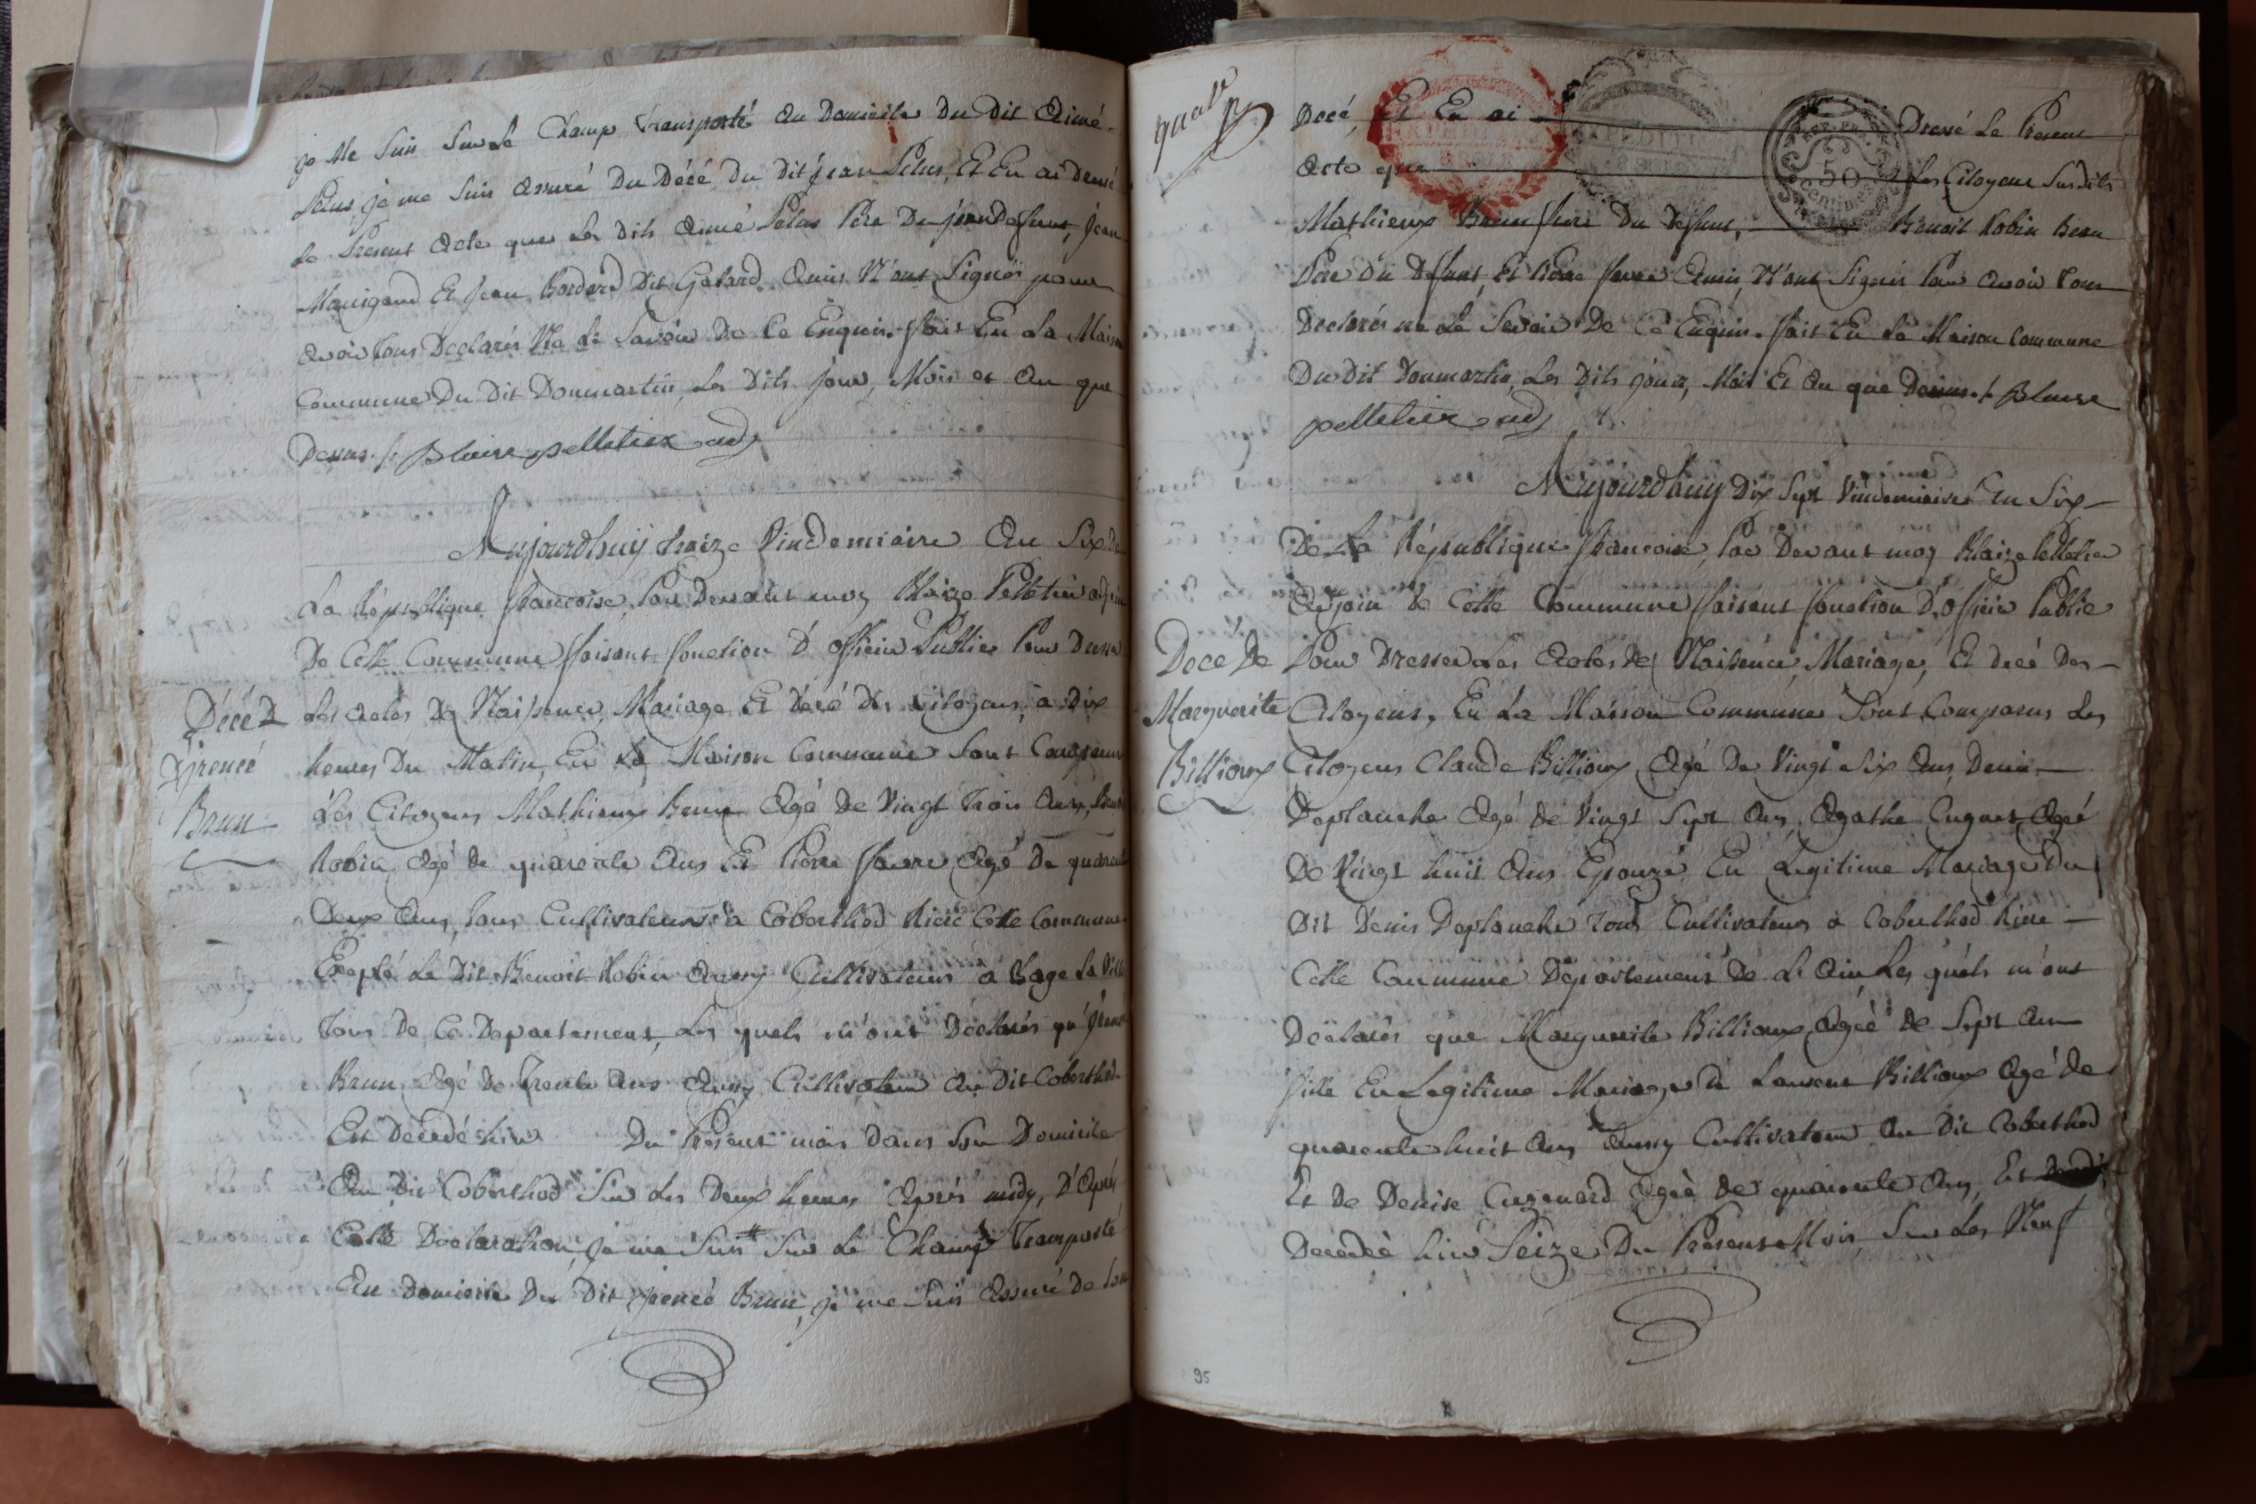 je Me Suis Sur Le Champ Transporté Au Domicile Du Dit Aimé
Pelus, je me Suis assuré Du Décé Du Dit jean Pelus, Et En ai Dressé
Le Present Acte que Les Dits Aimé Pelus Père Du jean Defunt, jean
Manigand Et jean Bordard Dit Galard Amis N'ont Signés pour
avoir Tous Declarés Ne Le Savoir De Ce Enquis. fait En La Maison
Commune Du Dit Dommartin, Les Dits jour, Mois et An que
Dessus. /. Blaise pelletier adj
Aujourdhuy Traize Vindemiaire An Six De
La République françoise, Par Devant moy Blaize Pelletier adjoin
De Cette Commune faisant fonction D'officier Public Pour Dresser
Décé D
jrenée
Brun
Les Actes De Naissance, Mariage Et décé Des Citoyens, a Dix
heures Du Matin, En La Maison Commune Sont Comparus
Les Citoyens Mathieux Brun Agé De Vingt Trois Ans, Benoit
Robin Agé de quarente Ans Et Pierre favre Agé De quarente
Deux Ans, Tous Cultivateurs à Coberthod Riere Cette Commune
Excepté Le Dit Benoit Robin Aussy Cultivateur à Bage La Ville
Tous De Ce Departement, Les quels m'ont Déclarés qu'jrenée
Brun Agé De Trente Ans Aussy Cultivateur Au Dit Coberthod
Est Décedé hier Du Présent mois Dans Son Domicile
Au Dit Coberthod Sur Les Deux heures Après midy, D'Après
Cette Declaration, je me Suis Sur Le Champ Transporté
Au Domicile Du Dit jrenée Brun, je me Suis Assuré De Son
quatr
Decé, Et En ai Dressé Le Present
Acte que Les Citoyens Susdits
Mathieux Brun frere Du Defunt, Benoit Robin Beau
Pere Du Defunt, Et Pierre favre Amis, N'ont Signés Pour Avoir Tous
Declarés ne Le Savoir De Ce Enquis. fait En La Maison Commune
Du Dit Dommartin, Les Dits jour, Mois Et An que Dessus. /. Blaise
pelletier adj
Aujourdhuy Dix Sept Vindemiaire En Six
De La République françoise, Par Devant moy Blaize Pelletier
Adjoin De Cette Commune faisant fonction D'officier Public
Decé De
Marguerite
Billioux
Pour Dresser Les Actes De Naisance, Mariage, Et decé Des
Citoyens, En La Maison Commune Sont Comparus Les
Citoyens Claude Billioux Agé De Vingt Six Ans Denis
Deplanche Agé de Vingt Sept Ans, Agathe Cugnet Ageé
De Vingt huit Ans Epouze En Legitime Mariage Du
Dit Denis Deplanche Tous Cultivateurs à Coberthod Riere
Cette Commune Département De L'Ain, Les quels m'ont
Déclarés que Marguerite Billioux Ageé De Sept Ans
fille En Legitime Mariage De Laurent Billioux Agé de
quarente huit Ans Aussy Cultivateur Au Dit Coberthod
Et De Denise Cugenard Ageé De quarente Ans, Est
Decedeé hier Seize Du Present Mois, Sur Les Neuf
50
95